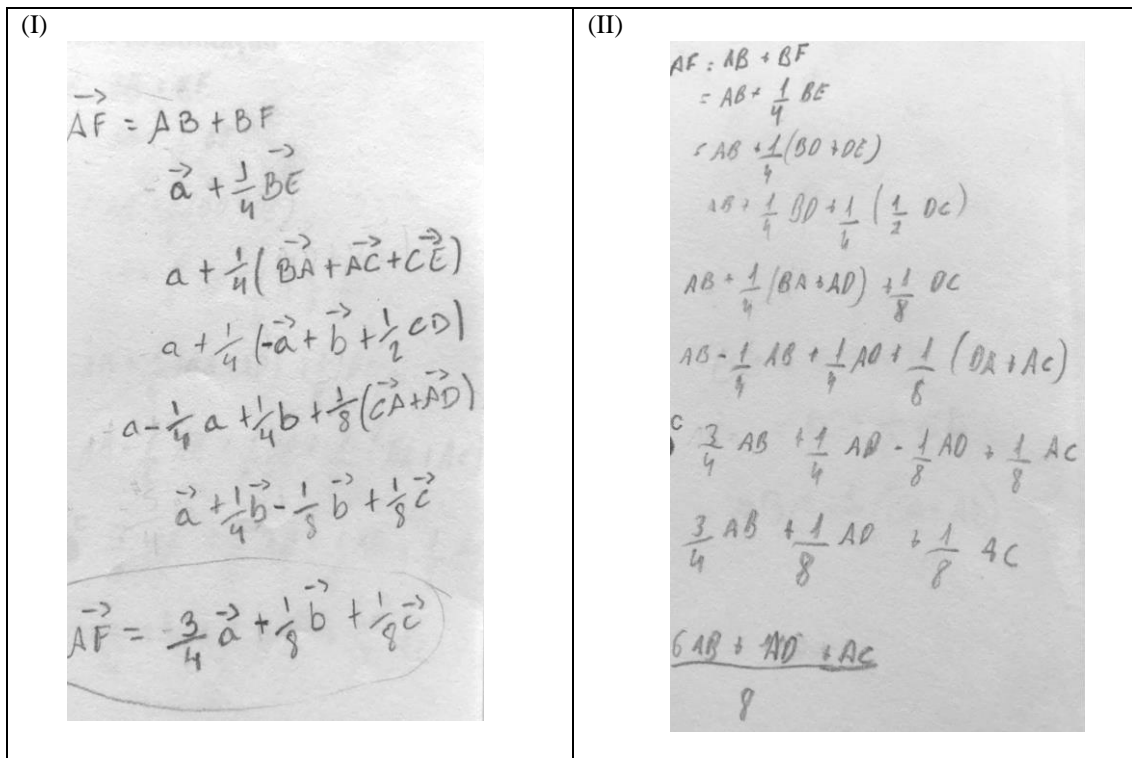 (I)
AF⃗ = AB + BF
a⃗ + 1/4 BE⃗
a + 1/4 (BA⃗ + AC⃗ + CE⃗)
a + 1/4 (-a⃗ + b⃗ + 1/2 CD)
a - 1/4 a + 1/4 b + 1/8 (CA⃗ + AD⃗)
a⃗ + 1/4 b⃗ - 1/8 b⃗ + 1/8 c⃗
AF⃗ = 3/4 a⃗ + 1/8 b⃗ + 1/8 c⃗
(II)
AF = AB + BF
= AB + 1/4 BE
= AB + 1/4 (BD + DE)
AB + 1/4 BD + 1/4 (1/2 DC)
AB + 1/4 (BA + AD) + 1/8 DC
AB - 1/4 AB + 1/4 AD + 1/8 (DA + AC)
3/4 AB + 1/4 AD - 1/8 AD + 1/8 AC
3/4 AB + 1/8 AD + 1/8 AC
6AB + AD + AC
8